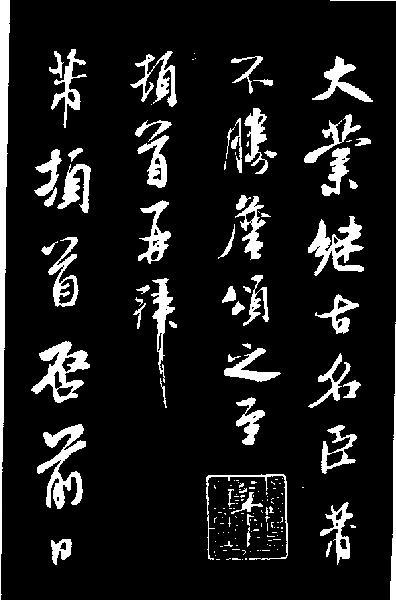 大業継古名臣芾
不勝詹頌之至
頓首再拜
芾頓首啓前日